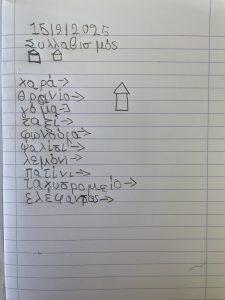 15/9/2025
Συλλαβισμός
χαρά→
θρανίο→
γόμα→
ταξί→
φωνούλα→
ψαλίδι→
λεμόνι→
πατίνι→
ταχυδρομείο→
ελέφαντας→